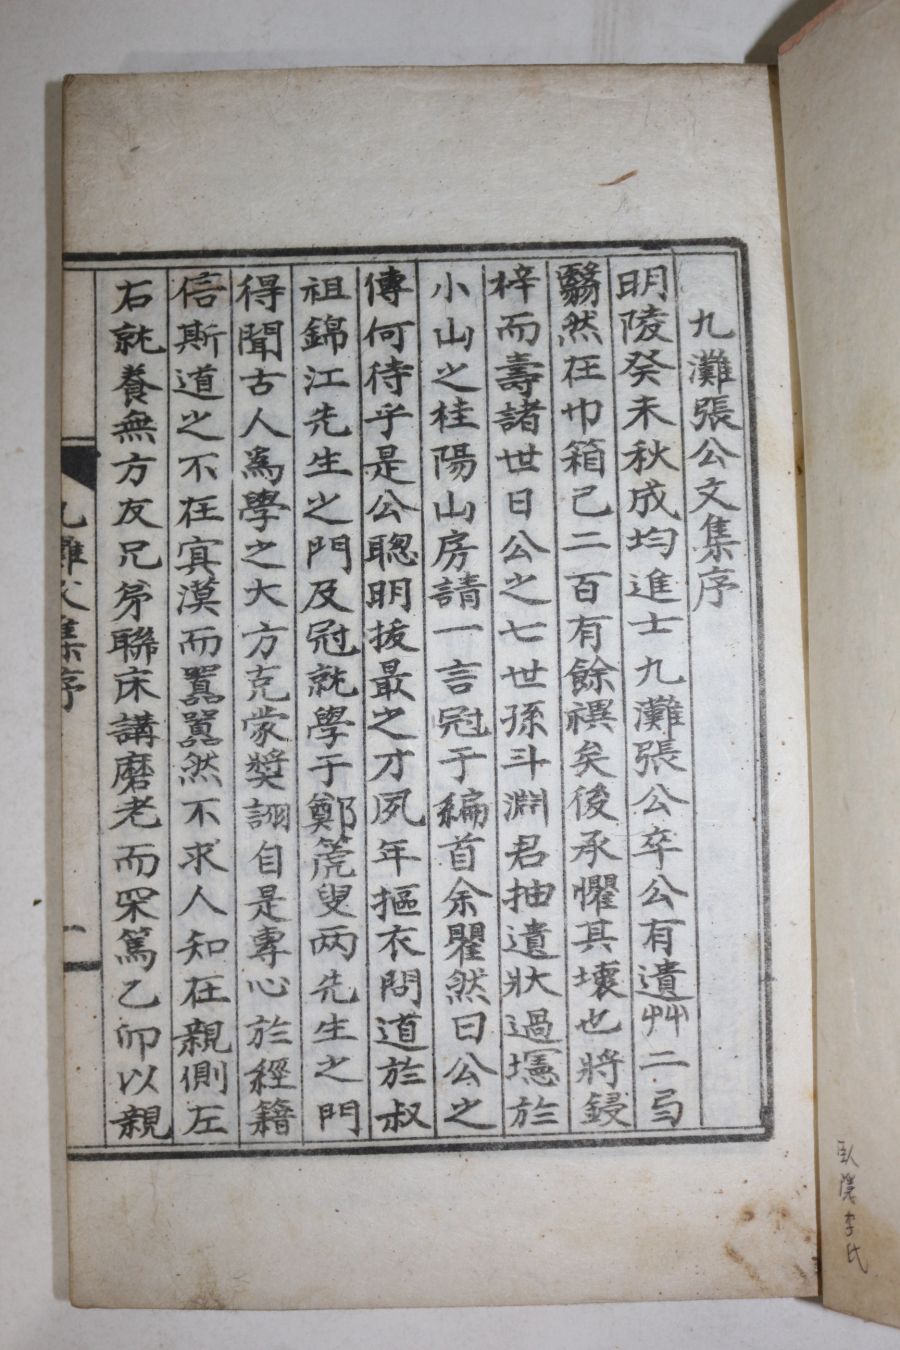 九灘張公文集序
明陵癸未秋成均進士九灘張公卒公有遺艸二弓
翳然在巾箱已二百有餘禩矣後承懼其壞也將鋟
梓而壽諸世日公之七世孫斗淵君抽遺狀過壥於
小山之桂陽山房請一言冠于編首余瞿然曰公之
傳何待乎是公聰明拔最之才夙年摳衣問道於叔
祖錦江先生之門及冠就學于鄭箎叟兩先生之門
得聞古人爲學之大方克蒙奬詡自是專心於經籍
信斯道之不在寘漠而囂囂然不求人知在親側左
右就養無方友兄弟聯床講磨老而罙篤乙卯以親
九灘文集序
一
臥隱李氏